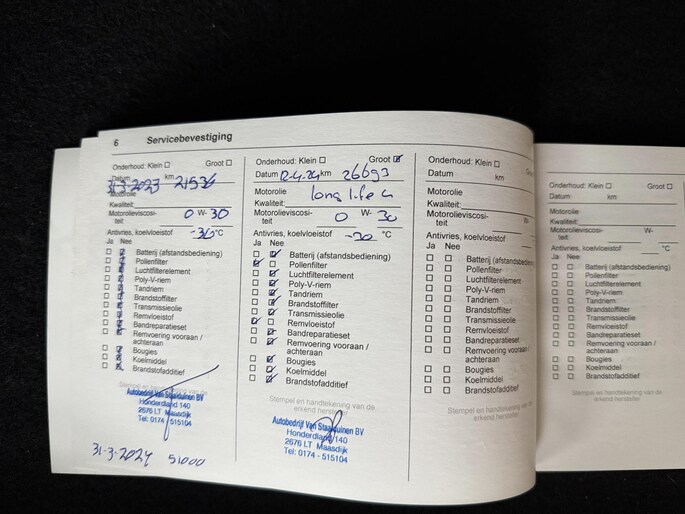 6 Servicebevestiging
Onderhoud: Klein Groot
Datum km
31-3-2023 21536
Motorolie
Kwaliteit:
Motorolieviscosi- 0 W- 30
teit
Antivries, koelvloeistof -36 °C
Ja Nee
Batterij (afstandsbediening)
Pollenfilter
Luchtfilterelement
Poly-V-riem
Tandriem
Brandstoffilter
Transmissieolie
Remvloeistof
Bandreparatieset
Remvoering vooraan /
achteraan
Bougies
Koelmiddel
Brandstofadditief
Stempel en handtekening van de
Autobedrijf Van Staalduinen BV
Honderdland 140
2676 LT Maasdijk
Tel: 0174 - 515104
31-3-2024 51000
Onderhoud: Klein Groot
Datum 12-4-24 km 26693
Motorolie long life 4
Kwaliteit:
Motorolieviscosi- 0 W- 30
teit
Antivries, koelvloeistof -30 °C
Ja Nee
Batterij (afstandsbediening)
Pollenfilter
Luchtfilterelement
Poly-V-riem
Tandriem
Brandstoffilter
Transmissieolie
Remvloeistof
Bandreparatieset
Remvoering vooraan /
achteraan
Bougies
Koelmiddel
Brandstofadditief
Stempel en handtekening van de
erkend hersteller
Autobedrijf Van Staalduinen BV
Honderdland 140
2676 LT Maasdijk
Tel: 0174 - 515104
Onderhoud: Klein
Datum km
Motorolie
Kwaliteit:
Motorolieviscosi- W-
teit
Antivries, koelvloeistof
Ja Nee
Batterij (afstandsbediening)
Pollenfilter
Luchtfilterelement
Poly-V-riem
Tandriem
Brandstoffilter
Transmissieolie
Remvloeistof
Bandreparatieset
Remvoering vooraan /
achteraan
Bougies
Koelmiddel
Brandstofadditief
Stempel en handtekening van de
erkend hersteller
Onderhoud: Klein Groot
Datum km
Motorolie
Kwaliteit:
Motorolieviscosi- W-
teit
Antivries, koelvloeistof °C
Ja Nee
Batterij (afstandsbediening)
Pollenfilter
Luchtfilterelement
Poly-V-riem
Tandriem
Brandstoffilter
Transmissieolie
Remvloeistof
Bandreparatieset
Remvoering vooraan /
achteraan
Bougies
Koelmiddel
Brandstofadditief
Stempel en handtekening van de
erkend hersteller